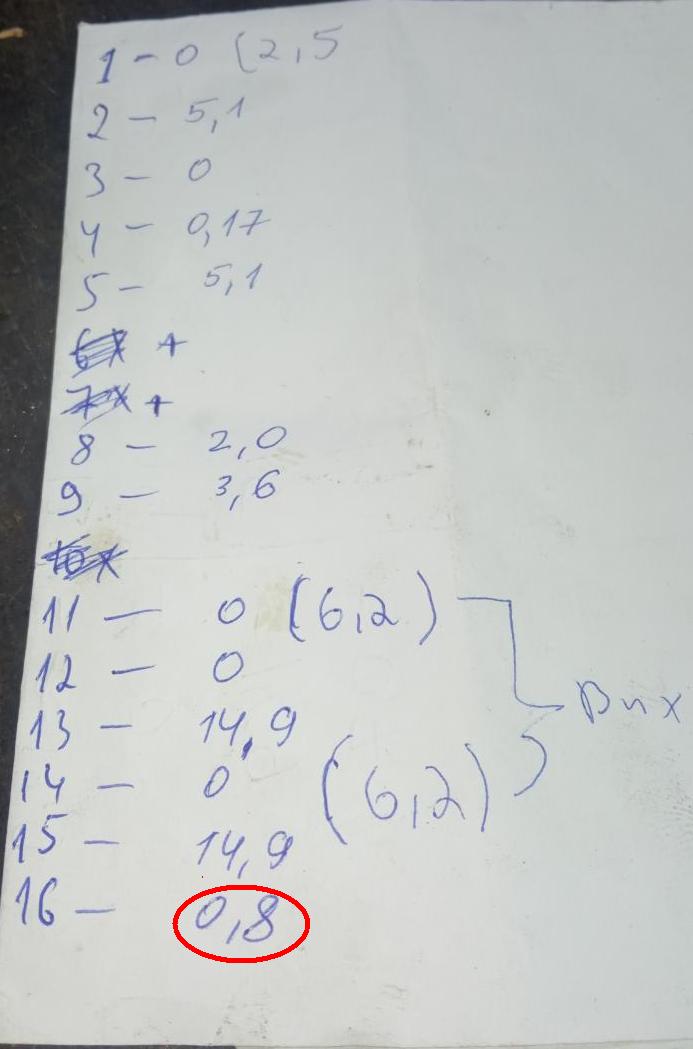 1 - 0 (2,5
2 - 5,1
3 - 0
4 - 0,17
5 - 5,1
+
+
8 - 2,0
9 - 3,6
11 - 0 (6,2)
12 - 0
Вих
13 - 14,9
14 - 0 (6,2)
15 - 14,9
16 - 0,8